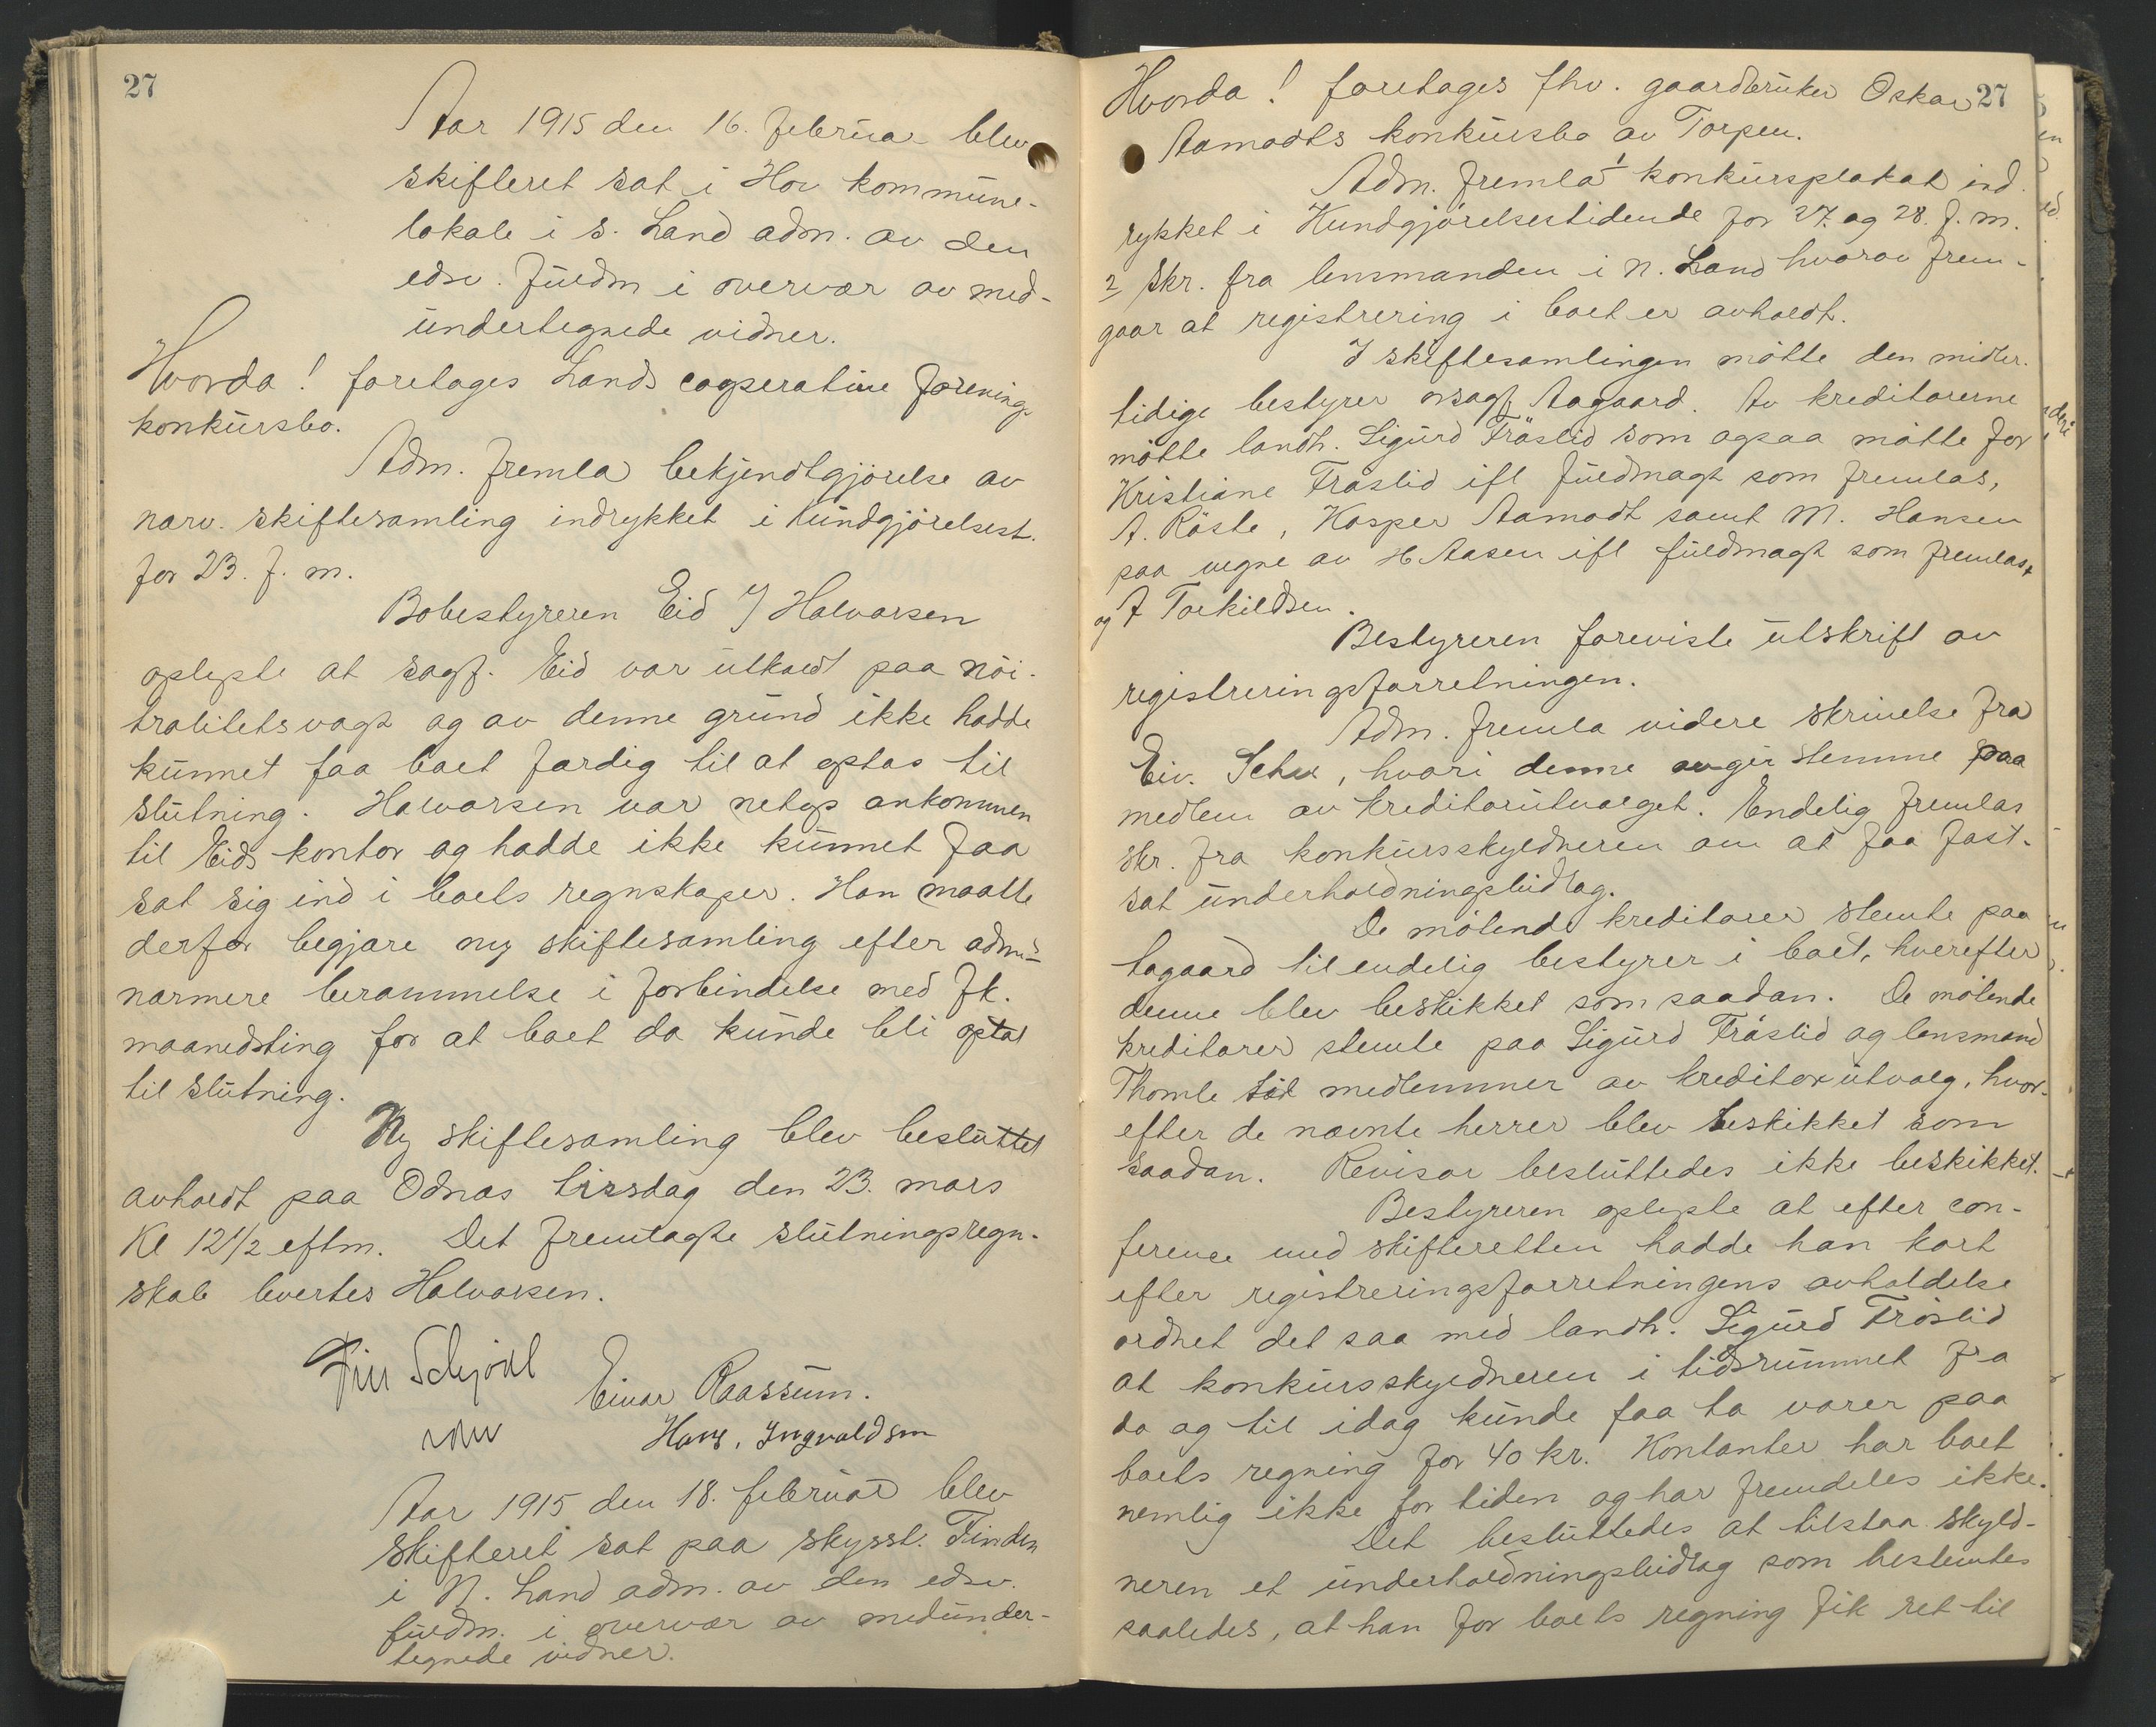 27
Aar 1915 den 16. februar blev
skifteret sat i Hov kommune-
lokale i s. Land adm. av den
edsv. fuldm i overvær av med-
undertegnede vidner.
Hvorda! foretages Lands cooperative forenings
konkursbo.
Adm. fremla bekjendtgjørelse av
nærv. skiftesamling indrykket i Kundgjørelsest.
for 23. f. m.
Bobestyreren Eid v/ Halvorsen
oplyste at sagf. Eid var utkaldt paa nöi-
tralitetsvagt og av denne grund ikke hadde
kunnet faa boet færdig til at optas til
slutning. Halvorsen var netop ankommen
til Eids kontor og hadde ikke kunnet faa
sat sig ind i boets regnskaper. Han maatte
derfor begjære ny skiftesamling efter adm's
nærmere berammelse i forbindelse med fk.
maanedsting for at boet da kunde bli optat
til slutning.
Ny skiftesamling blev besluttet
avholdt paa Odnæs tirsdag den 23. mars
Kl 12 1/2 eftm. Det fremlagte slutningsregn-
skab levertes Halvorsen.
Schjödt
Einar Raassum.
Hans. Ingvaldsen
Aar 1915 den 18. februar blev
skifteret sat paa skysst. Finden
i N. Land adm. av den edsv.
fuldm. i overvær av medunder-
tegnede vidner.
27
Hvorda! foretages fhv. gaardbruker Oskar
Aamodts konkursbo av Torpen.
Adm. fremla 1 konkursplakat ind-
rykket i Kundgjörelsestidende for 27. og 28. f. m.
2 skr. fra lensmanden i N. Land hvorav frem-
gaar at registrering i boet er avholdt.
I skiftesamlingen mötte den midler-
tidige bestyrer osagf. Aagaard. Av kreditorerne
mötte landh. Sigurd Fröslid som ogsaa mötte for
Kristiane Fröslid ifl fuldmagt som fremlas,
A. Röste, Kasper Aamodt samt M. Hansen
paa vegne av H Aasen ifl fuldmagt som fremlas
og A Torkildsen.
Bestyreren foreviste utskrift av
registreringsforretningen.
Adm. fremla videre skrivelse fra
Eiv. , hvori denne avgir stemme paa
medlem av kreditorutvalget. Endelig fremlas
skr. fra konkursskyldneren om at faa fast-
sat underholdningsbidrag.
De mötende kreditorer stemte paa
Aagaard til endelig bestyrer i boet, hvorefter
denne blev beskikket som saadan. De mötende
kreditorer stemte paa Sigurd Fröslid og lensmand
Thomle til medlemmer av kreditorutvalg, hvor-
efter de nævnte herrer blev beskikket som
saadan. Revisor besluttedes ikke beskikket.
Bestyreren oplyste at efter con-
ference med skifteretten hadde han kort
efter registreringsforretningens avholdelse
ordnet det saa med landh. Sigurd Fröslid
at konkursskyldneren i tidsrummet fra
da og til idag kunde faa ta varer paa
boets regning for 40 kr. Kontanter har boet
nemlig ikke for tiden og har fremdeles ikke.
Det besluttedes at tilstaa skyld-
neren et underholdningsbidrag som bestemtes
saaledes, at han for boets regning fik ret til